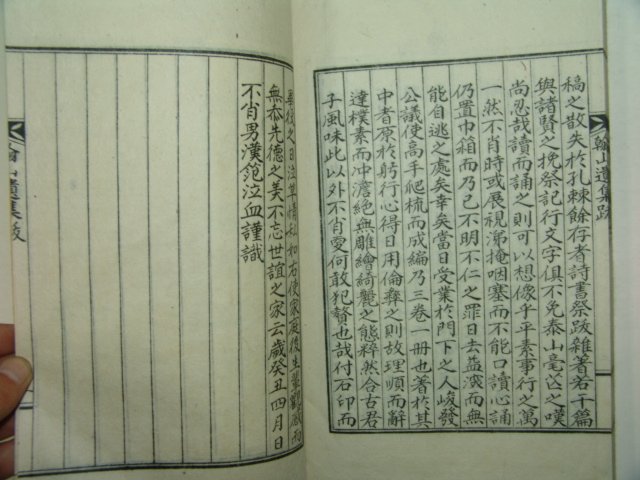 稿之散失於孔棘餘存者詩書祭跋雜著若干篇
與諸賢之挽祭記行文字俱不免泰山毫芒之嘆
尚忍哉讀而誦之則可以想像乎平素事行之萬
一然不肖時或展視涕掩咽塞而不能口讀心誦
仍置巾箱而乃已不明不仁之罪日去益深而無
能自逃之處矣幸矣當日受業於門下之人峻發
公議使高手爬梳而成編乃三卷一冊也著於其
中者原於躬行心得日用倫彝之則故理順而辭
達樸素而冲澹絕無雕繪綺麗之態粹然合古君
子風味此以外不肖更何敢犯贅也哉付石印而
之日泣草情私如右使家庭後生
無忝先德之美不忘世誼之家云歲癸丑四月日
不肖男漢範泣血謹識
山遺集跋
山遺集跋